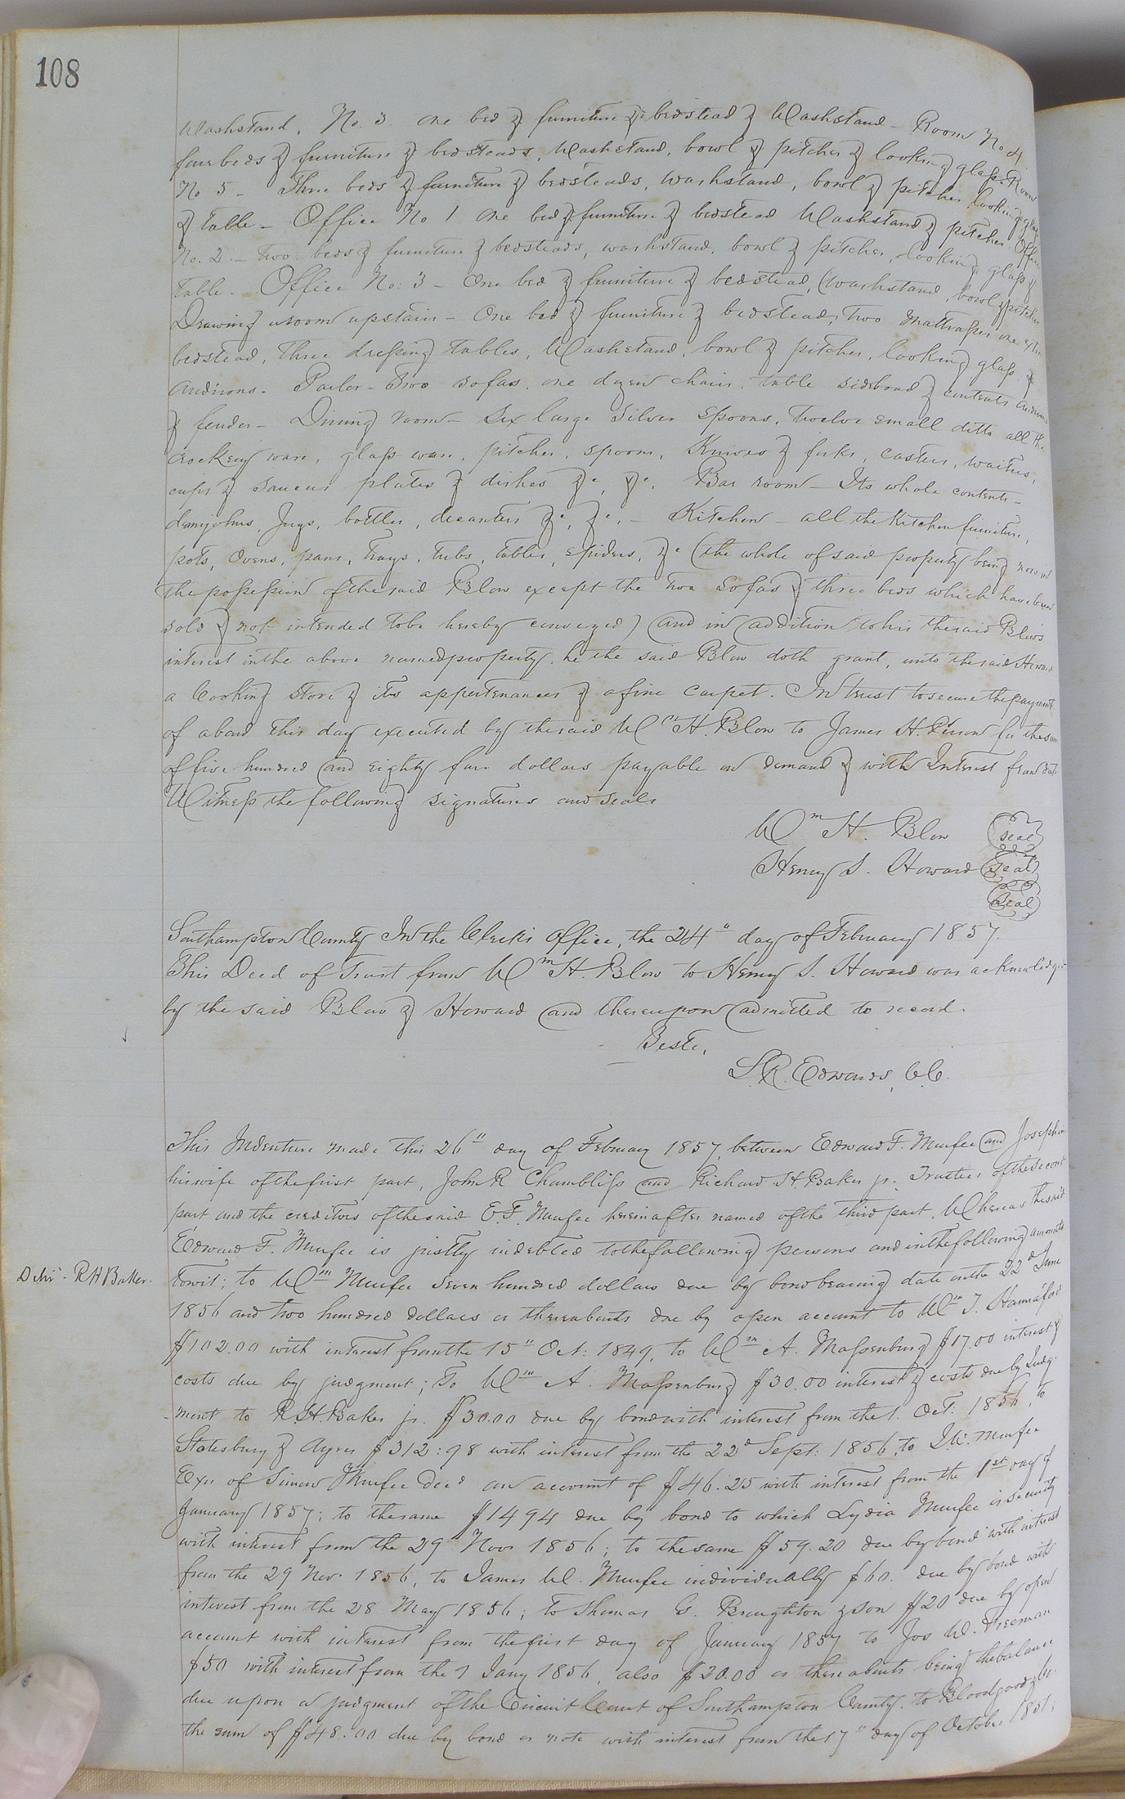 108
Washstand, No. 3. one bed & furniture & bedstead & Washstand - Room No 4
four beds & furniture & bedsteads, Washstand, bowl & pitcher & looking glass. Room
No 5 - Three beds & furniture & bedsteads, washstand, bowl & pitcher looking glass
& table - Office No 1 one bed & furniture & bedstead Washstand & pitcher. Office
No. 2 - two beds & furniture & bedsteads, washstand, bowl & pitcher, looking glass &
table. Office No: 3 - One bed & furniture & bedstead, Washstand, bowl & pitcher
Drawing room upstairs - One bed & furniture & bedstead, Two Mattrasses one
bedstead, three dressing tables, Washstand, bowl & pitcher, looking glass &
andirons. Parlor - Two sofas, one dozen chairs, table sideboard & contents andirons
& fender - Dining room - Six large Silver spoons, Twelve small ditto all the
crockery ware, glass ware, pitchers, spoons, Knives & forks, casters, waiters,
cups & saucers plates & dishes &c, &c. Bar room - Its whole contents -
demijohns, Jugs, bottles, decanters &c, &c. - Kitchen - all the Kitchen furniture,
pots, Ovens, pans, trays, tubs, tables, spiders, &c (the whole of said property being now in
the possession of the said Blow except the two sofas & three beds which have been
sold & not intended to be hereby conveyed) and in addition to his the said Blow's
interest in the above named property, he the said Blow doth grant, unto the said Howard
a Cooking stove & its appertenances & a fine carpet. In trust to secure the payment
of a bond this day executed by the said Wm H. Blow to James H. for the sum
of five hundred and eighty four dollars payable on demand & with Interest from date
Witness the following signatures and seals
Wm H. Blow (seal)
Henry S. Howard (seal)
(seal)
Southampton County In the Clerk's Office, the 24" day of February 1857.
This Deed of Trust from Wm H. Blow to Henry S. Howard was acknowledged
by the said Blow & Howard and thereupon admitted to record.
Teste,
L. R. Edwards, C.C.
This Indenture made this 26" day of February 1857, between Edward F. Murfee and Joseph
his wife of the first part, John R Chambliss and Richard H. Baker jr. Trustees of the second
part and the creditors of the said E. F. Murfee hereinafter named of the third part, Whereas the said
Edward F. Murfee is justly indebted to the following persons and in the following amounts
Delvd R H Baker.
towit: to Wm Murfee Seven hundred dollars due by bond bearing date on the 22d June
1856 and two hundred dollars or thereabouts due by open account to Wm J.
$102.00 with interest from the 15" Oct. 1849, to Wm A. Massenburg $17.00 interest &
costs due by judgment; To Wm A. Massenburg $30.00 interest & costs due by Judg-
-ment to R. H. Baker jr. $30.00 due by bond with interest from the 1. Oct. 1856, to
Statesbury & Ayres $312:98 with interest from the 22d Sept: 1856, to J. W. Murfee
Exr of Simon Murfee decd an account of $46.25 with interest from the 1st day of
January 1857; to the same $1494 due by bond to which Lydia Murfee is security
with interest from the 29 Novr 1856; to the same $59.20 due by bond with interest
from the 29 Nov. 1856, to James W. Murfee individually $60. due by bond with
interest from the 28 May 1856; To Thomas G. Broughton & son $20 due by open
account with interest from the first day of January 1857 to Jos W. Freeman
$50 with interest from the 1 Jany 1856, also $20.00 or thereabouts being the balance
due upon a judgment of the Circuit Court of Southampton County. to Bloodgood & Co.
the sum of $48.00 due by bond or note with interest from the 17" day of October 1851;